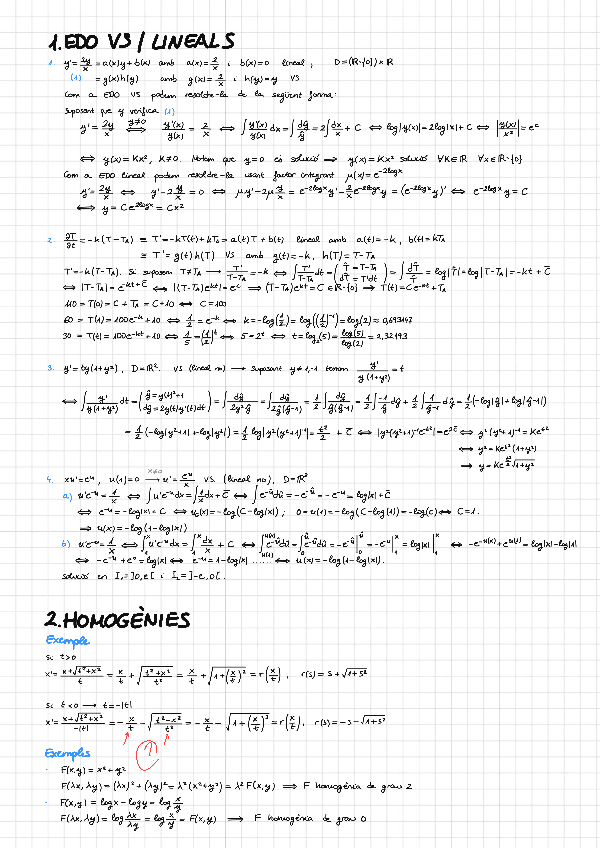 1. EDO VS / LINEALS
1. y' = 2y/x = a(x)y + b(x) amb a(x) = 2/x i b(x) = 0 lineal, D = (ℝ\{0}) × ℝ
(1) = g(x)h(y) amb g(x) = 2/x i h(y) = y VS
Com a EDO VS podem resoldre-la de la següent forma:
Suposant que y verifica (1)
y' = 2y/x ⟺ (y≠0) y'(x)/y(x) = 2/x ⟺ ∫ y'(x)/y(x) dx = ∫ dŷ/ŷ = 2∫ dx/x + C ⟺ log|y(x)| = 2log|x| + C ⟺ |y(x)/x²| = e^c
⟺ y(x) = Kx², K≠0. Notem que y = 0 és solució ⟹ y(x) = Kx² solució ∀K∈ℝ ∀x∈ℝ\{0}
Com a EDO lineal podem resoldre-la usant factor integrant μ(x) = e^(-2logx)
y' = 2y/x ⟺ y' - 2y/x = 0 ⟺ μy' - 2μ y/x = e^(-2logx)y' - 2/x e^(-2logx)y = (e^(-2logx)y)' ⟺ e^(-2logx)y = C
⟺ y = Ce^(2logx) = Cx²
2. ∂T/∂t = -k(T - T_A) ≡ T' = -kT(t) + kT_A = a(t)T + b(t) lineal amb a(t) = -k, b(t) = kT_A
≡ T' = g(t)h(T) VS amb g(t) = -k, h(T) = T - T_A
T' = -k(T - T_A). Si suposem T≠T_A ⟶ T'/(T-T_A) = -k ⟺ ∫ T'/(T-T_A) dt = (T̂ = T-T_A, dT̂ = T'dt) = ∫ dT̂/T̂ = log|T̂| = log|T-T_A| = -kt + C̄
⟺ |T-T_A| = e^(-kt+C̄) ⟺ |(T-T_A)e^(kt)| = e^C̄ ⟹ (T-T_A)e^(kt) = C ∈ ℝ\{0} ⟶ T(t) = Ce^(-kt) + T_A
110 = T(0) = C + T_A = C + 10 ⟺ C = 100
60 = T(1) = 100e^(-k) + 10 ⟺ 1/2 = e^(-k) ⟺ k = -log(1/2) = log((1/2)^(-1)) = log(2) ≈ 0,693147
30 = T(t) = 100e^(-kt) + 10 ⟺ 1/5 = (1/2)^t ⟺ 5 = 2^t ⟺ t = log₂(5) = log(5)/log(2) = 2,32193
3. y' = ty(1+y²), D = ℝ². VS (lineal no) ⟶ suposant y≠ tenim y'/(y(1+y²)) = t
⟺ ∫ y'/(y(1+y²)) dt = (ŷ = y(t)²+1, dŷ = 2y(t)y'(t)dt) = ∫ dŷ/(2y²ŷ) = ∫ dŷ/(2ŷ(ŷ-1)) = 1/2 ∫ dŷ/(ŷ(ŷ-1)) = 1/2 ∫ -1/ŷ dŷ + 1/2 ∫ 1/(ŷ-1) dŷ = 1/2 (-log|ŷ| + log|ŷ-1|)
= 1/2 (-log|y²+1| + log|y²|) = 1/2 log|y²(y²+1)^(-1)| = t²/2 + C̄ ⟺ |y²(y²+1)^(-1)e^(-t²)| = e^(2C̄) ⟺ y²(y²+1)^(-1) = Ke^(t²)
⟺ y² = Ke^(t²)(1+y²)
⟹ y = Ke^(t²/2)√(1+y²)
4. xu' = e^u, u(1) = 0 ⟶ (x≠0) u' = e^u/x VS (lineal no), D = ℝ²
a) u'e^(-u) = 1/x ⟺ ∫ u'e^(-u)dx = ∫ 1/x dx + C̄ ⟺ ∫ e^(-û)dû = -e^(-û) = -e^(-u) = log|x| + C̄
⟺ e^(-u) = -log|x| + C ⟺ u(x) = -log(C - log|x|); 0 = u(1) = -log(C - log(1)) = -log(C) ⟺ C = 1.
⟹ u(x) = -log(1 - log|x|)
b) u'e^(-u) = 1/x ⟺ ∫₁^x u'e^(-u)dx = ∫₁^x dx/x + C ⟺ ∫_{u(1)}^{u(x)} e^(-û)dû = ∫₀^û e^(-û)dû = -e^(-û)|₀^û = -e^(-u)|₁^x = log|x| |₁^x ⟺ -e^(-u(x)) + e^(u(1)) = log|x| - log|1|
⟺ -e^(-u) + e^0 = log|x| ⟺ e^(-u) = 1 - log|x| ...... ⟺ u(x) = -log(1 - log|x|).
solució en I₁ = ]0,e[ i I₂ = ]-e,0[.
2. HOMOGÈNIES
Exemple
Si t>0
x' = (x+√(t²+x²))/t = x/t + √((t²+x²)/t²) = x/t + √(1+(x/t)²) = r(x/t), r(s) = s + √(1+s²)
Si t<0 ⟶ t = -|t|
x' = (x+√(t²+x²))/(-|t|) = -x/t - √((t²-x²)/t²) = -x/t - √(1+(x/t)²) = r(x/t), r(s) = -s - √(1+s²)
Exemples
· F(x,y) = x² + y²
F(λx, λy) = (λx)² + (λy)² = λ²(x²+y²) = λ² F(x,y) ⟹ F homogènia de grau 2
· F(x,y) = logx - logy = log x/y
F(λx, λy) = log λx/λy = log x/y = F(x,y) ⟹ F homogènia de grau 0